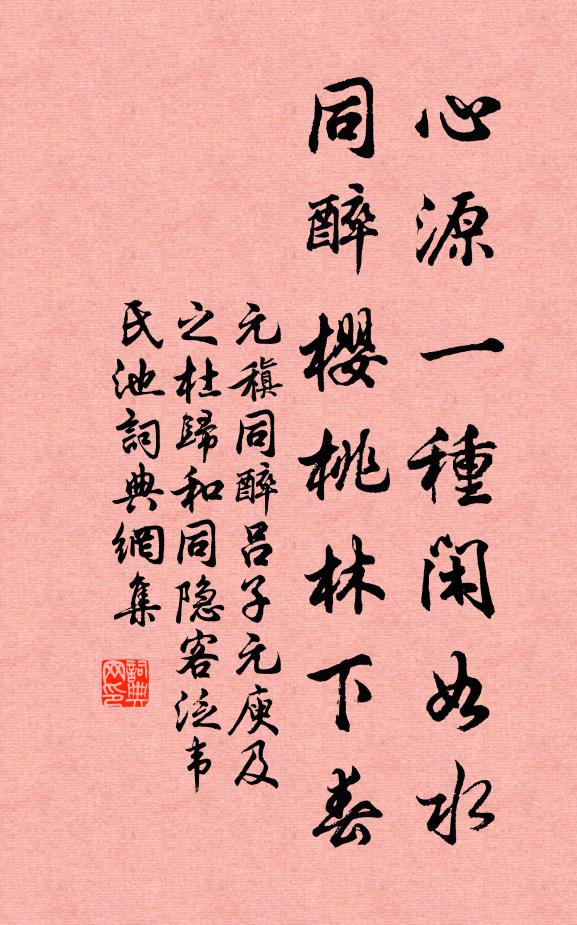 心源一種閑如水
同醉櫻桃林下春
元稹同醉吕子元庾及
之杜歸和同隐客泛韦
氏池詞典網集
詞典网印